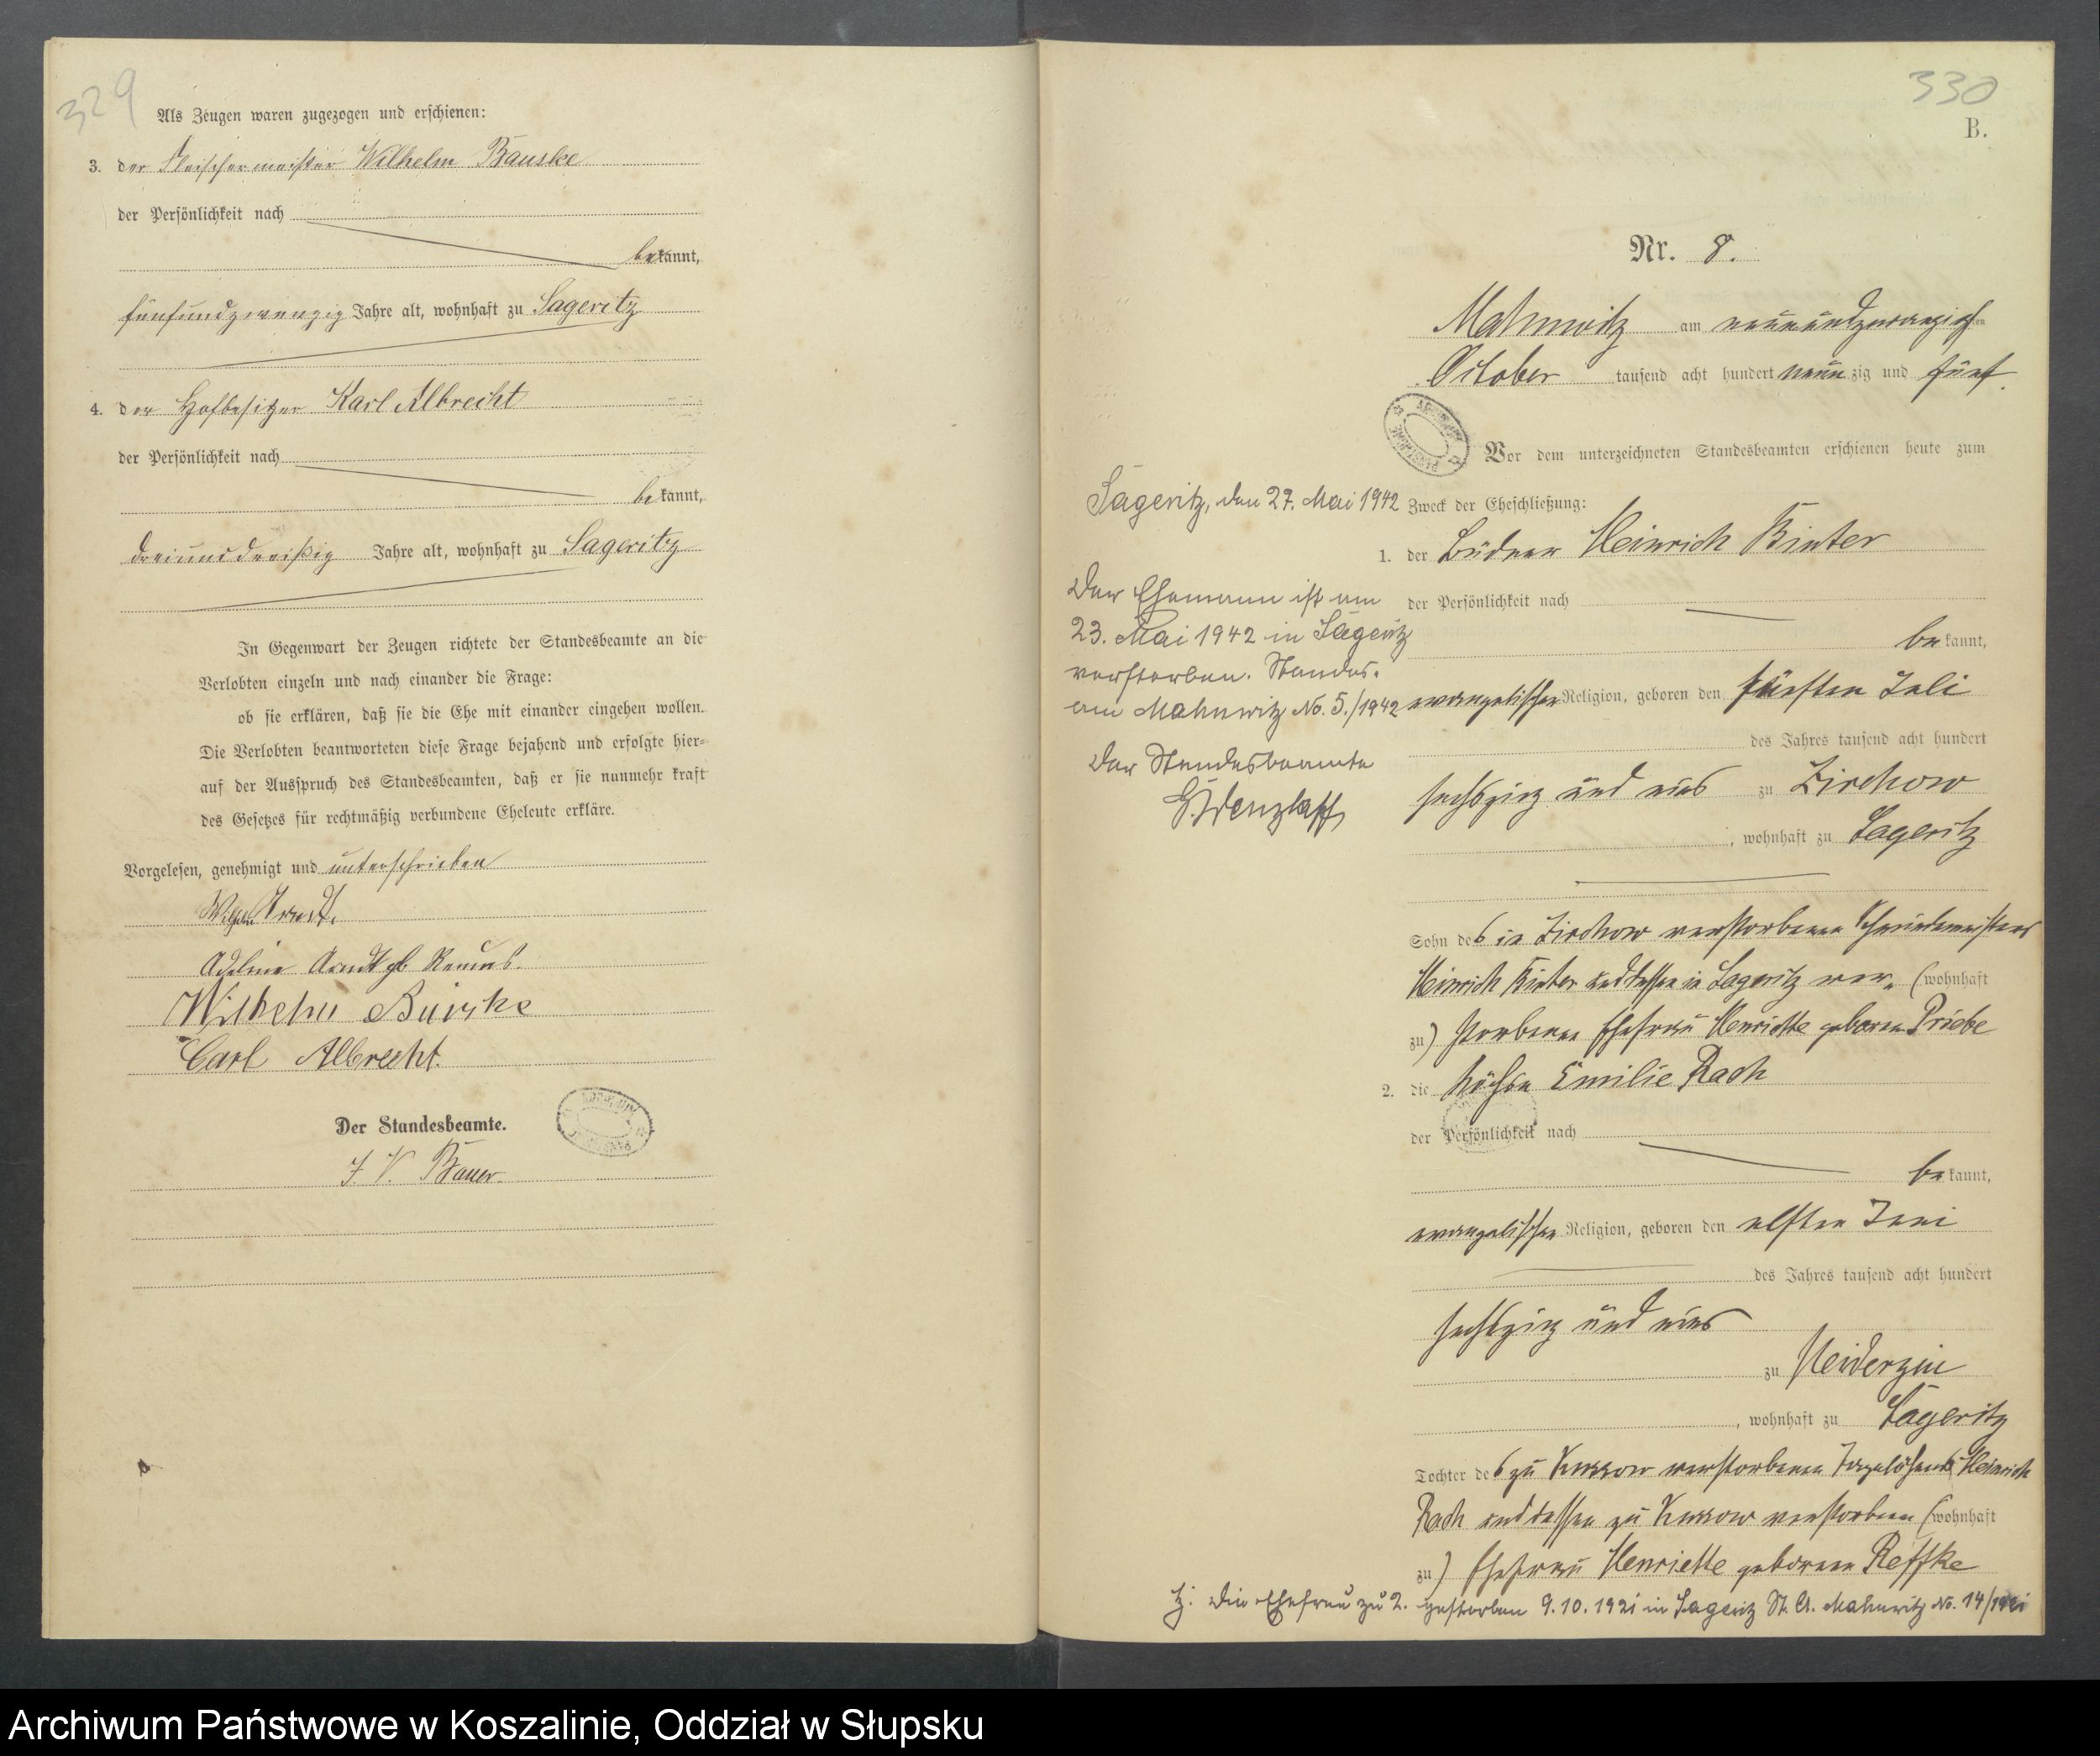 329
Als Zeugen waren zugezogen und erschienen:
3. der Fleischermeister Wilhelm Bauske
der Persönlichkeit nach
bekannt,
fünfundzwanzig Jahre alt, wohnhaft zu Sageritz
4. der Hofbesitzer Karl Albrecht
der Persönlichkeit nach
bekannt,
dreiunddreißig Jahre alt, wohnhaft zu Sageritz
In Gegenwart der Zeugen richtete der Standesbeamte an die
Verlobten einzeln und nach einander die Frage:
ob sie erklären, daß sie die Ehe mit einander eingehen wollen.
Die Verlobten beantworteten diese Frage bejahend und erfolgte hier=
auf der Ausspruch des Standesbeamten, daß er sie nunmehr kraft
des Gesetzes für rechtmäßig verbundene Eheleute erkläre.
Vorgelesen, genehmigt und unterschrieben
Arndt.
Arndt gb
Wilhelm
Carl Albrecht.
Der Standesbeamte.
J. V. Bauer.
330
B.
Nr. 8.
Mahnwitz am neunundzwanzigsten
October tausend acht hundert neunzig und fünf.
Vor dem unterzeichneten Standesbeamten erschienen heute zum
Zweck der Eheschließung:
1. der Büdner Heinrich Binter
der Persönlichkeit nach
bekannt,
evangelischer Religion, geboren den fünften Juli
des Jahres tausend acht hundert
sechszig und eins zu Zirchow
, wohnhaft zu Sageritz
Sohn des in Zirchow verstorbenen Schmiedemeisters
Heinrich Binter und dessen in Sageritz ver= (wohnhaft
zu) storbenen Ehefrau Henriette geboren Priebe
2. die Köchin Emilie Rach
der Persönlichkeit nach
bekannt,
evangelischer Religion, geboren den elften Juni
des Jahres tausend acht hundert
sechszig und eins
zu Neiderzin
, wohnhaft zu Sageritz
Tochter des zu Kussow verstorbenen Heinrich
Rach und dessen zu Kussow verstorbenen (wohnhaft
zu) Ehefrau Henriette geborenen Reffke
Sageritz, den 27. Mai 1942
Der Ehemann ist am
23. Mai 1942 in Sageritz
verstorben. Standes=
am Mahnwitz No. 5./1942
Der Standesbeamte
G. Wenzlaff
Die Ehefrau zu 2. gestorben 9.10.1921 in Sageritz St. A. Mahnwitz No. 14/1921
Archiwum Państwowe w Koszalinie, Oddział w Słupsku